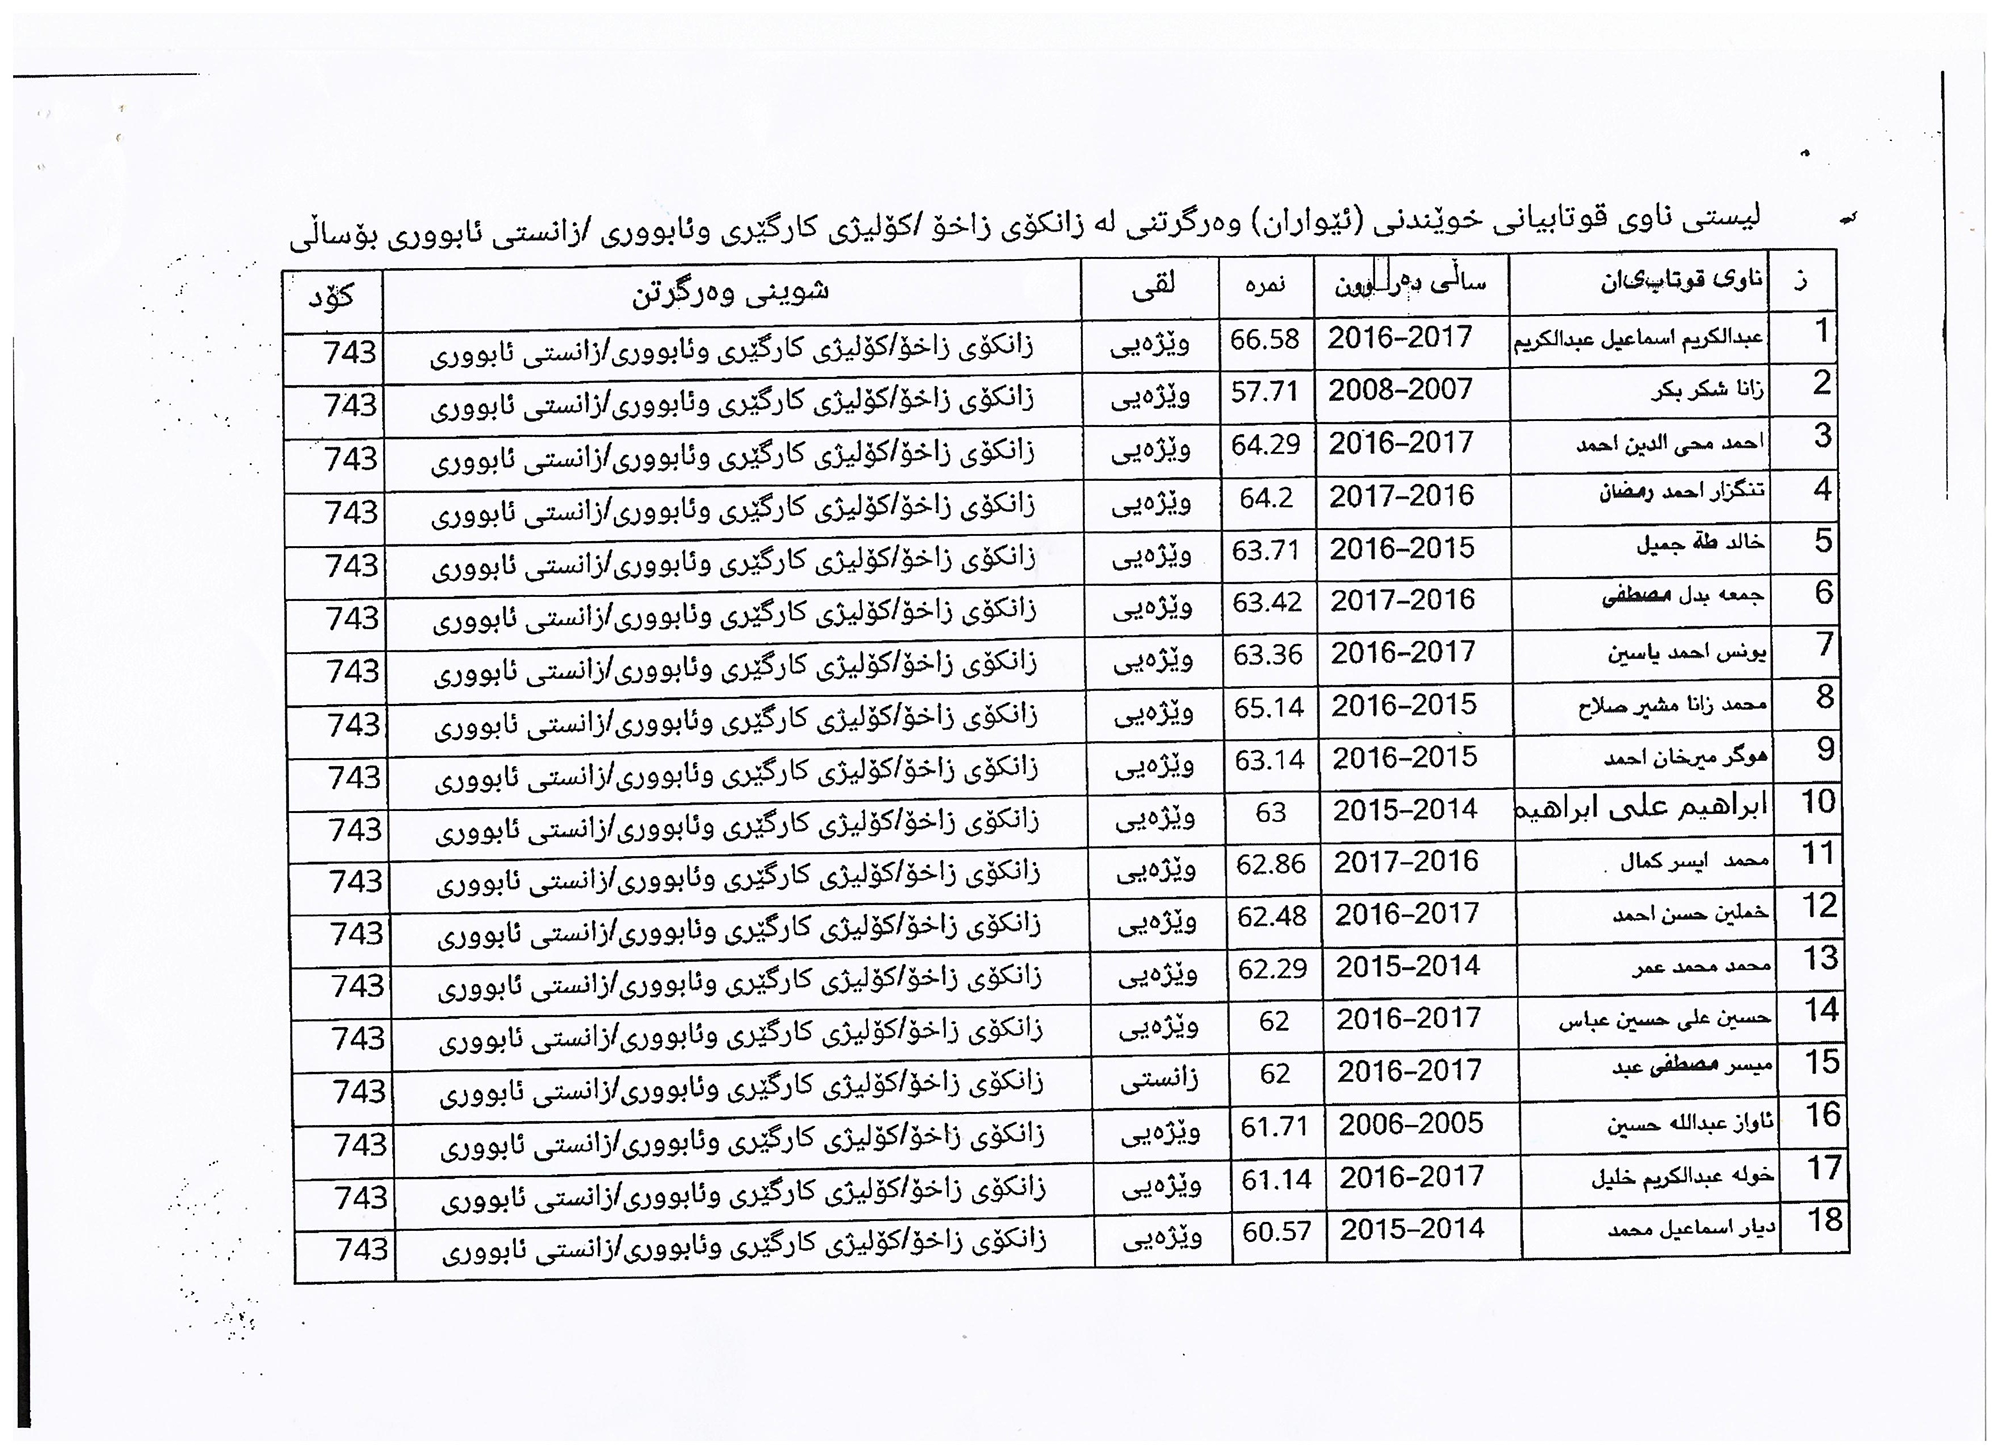 لیستی ناوی قوتابیانی خوێندنی (ئێواران) وەرگرتنی لە زانکۆی زاخۆ /کۆلیژی کارگێری وئابووری /زانستی ئابووری بۆساڵی
ز ناوی قوتاب‌ی‌ان ساڵی نمرە لقی شوینی وەرگرتن کۆد
1 عبدالکریم اسماعیل عبدالکریم 2016–2017 66.58 وێژەیی زانکۆی زاخۆ/کۆلیژی کارگێری وئابووری/زانستی ئابووری 743
2 زانا شکر بکر 2008–2007 57.71 وێژەیی زانکۆی زاخۆ/کۆلیژی کارگێری وئابووری/زانستی ئابووری 743
3 احمد محی الدین احمد 2016–2017 64.29 وێژەیی زانکۆی زاخۆ/کۆلیژی کارگێری وئابووری/زانستی ئابووری 743
4 تنگزار احمد رمضان 2017–2016 64.2 وێژەیی زانکۆی زاخۆ/کۆلیژی کارگێری وئابووری/زانستی ئابووری 743
5 خالد طة جمیل 2016–2015 63.71 وێژەیی زانکۆی زاخۆ/کۆلیژی کارگێری وئابووری/زانستی ئابووری 743
6 جمعه بدل مصطفی 2017–2016 63.42 وێژەیی زانکۆی زاخۆ/کۆلیژی کارگێری وئابووری/زانستی ئابووری 743
7 یونس احمد یاسین 2016–2017 63.36 وێژەیی زانکۆی زاخۆ/کۆلیژی کارگێری وئابووری/زانستی ئابووری 743
8 محمد زانا مشیر صلاح 2016–2015 65.14 وێژەیی زانکۆی زاخۆ/کۆلیژی کارگێری وئابووری/زانستی ئابووری 743
9 هوگر میرخان احمد 2016–2015 63.14 وێژەیی زانکۆی زاخۆ/کۆلیژی کارگێری وئابووری/زانستی ئابووری 743
10 ابراهیم علی ابراهیم 2015–2014 63 وێژەیی زانکۆی زاخۆ/کۆلیژی کارگێری وئابووری/زانستی ئابووری 743
11 محمد ایسر کمال 2017–2016 62.86 وێژەیی زانکۆی زاخۆ/کۆلیژی کارگێری وئابووری/زانستی ئابووری 743
12 خملین حسن احمد 2016–2017 62.48 وێژەیی زانکۆی زاخۆ/کۆلیژی کارگێری وئابووری/زانستی ئابووری 743
13 محمد محمد عمر 2015–2014 62.29 وێژەیی زانکۆی زاخۆ/کۆلیژی کارگێری وئابووری/زانستی ئابووری 743
14 حسین علی حسین عباس 2016–2017 62 وێژەیی زانکۆی زاخۆ/کۆلیژی کارگێری وئابووری/زانستی ئابووری 743
15 میسر مصطفی عبد 2016–2017 62 زانستی زانکۆی زاخۆ/کۆلیژی کارگێری وئابووری/زانستی ئابووری 743
16 ئاواز عبدالله حسین 2006–2005 61.71 وێژەیی زانکۆی زاخۆ/کۆلیژی کارگێری وئابووری/زانستی ئابووری 743
17 خوله عبدالکریم خلیل 2016–2017 61.14 وێژەیی زانکۆی زاخۆ/کۆلیژی کارگێری وئابووری/زانستی ئابووری 743
18 دیار اسماعیل محمد 2015–2014 60.57 وێژەیی زانکۆی زاخۆ/کۆلیژی کارگێری وئابووری/زانستی ئابووری 743